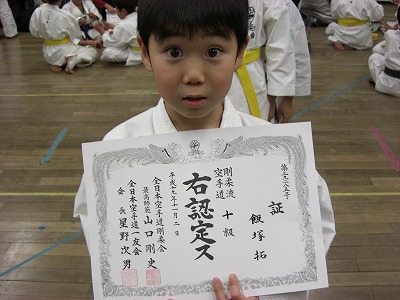 証
飯塚 拓
剛柔流
空手道 十級
右認定ス
平成十九年十一月二日
全日本空手道剛柔会
最高師範 山口剛史
全日本空手道一友会
会長 星野次男